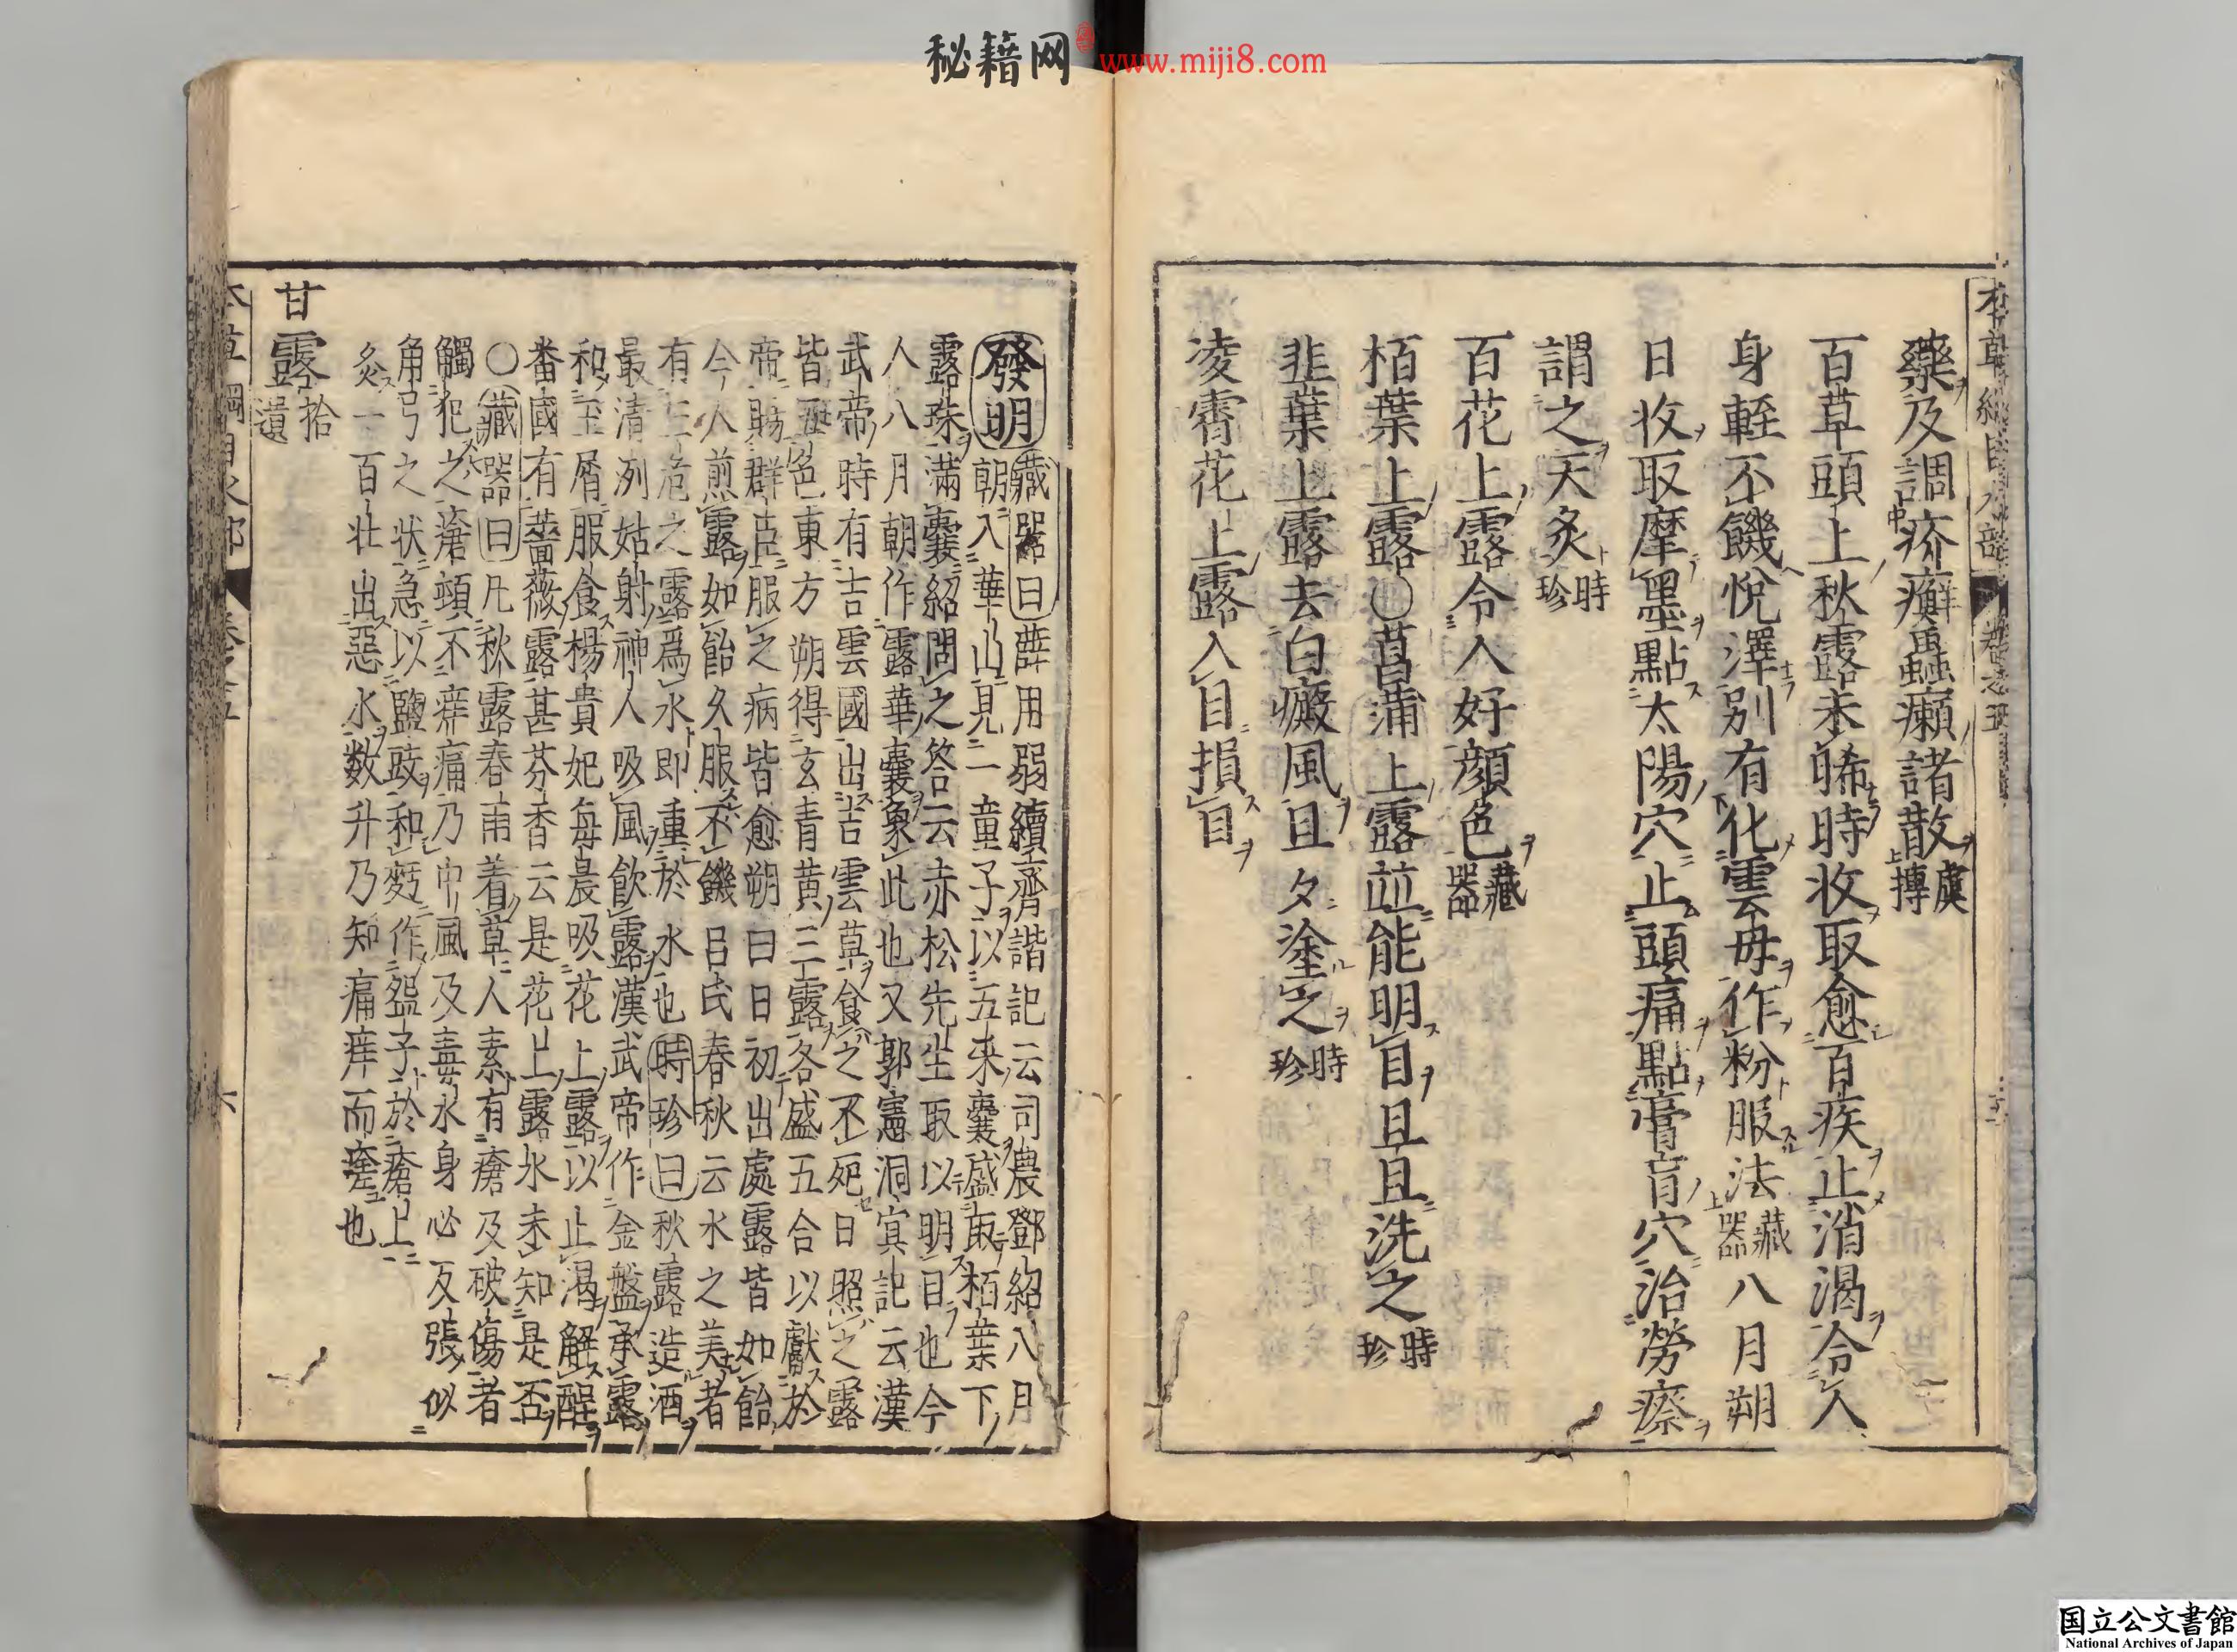 秘籍网 www.miji8.com
本草綱目水部 卷之五
藥及調疥癬蟲癩諸散虞摶
百草頭上秋露未晞時收取愈百疾止消渴令人
身輕不饑悅澤別有化雲母作粉服法藏器八月朔
日收取摩墨點太陽穴止頭痛點膏肓穴治勞瘵
謂之天灸時珍
百花上露令人好顏色藏器
栢葉上露○菖蒲上露並能明目旦旦洗之時珍
韭葉上露去白癜風旦夕塗之時珍
凌霄花上露入目損目
發明藏器曰薜用弱續齊諧記云司農鄧紹八月
朝入華山見一童子以五釆囊盛取栢葉下
露珠滿囊紹問之答云赤松先生取以明目也今
人八月朝作露華囊象此也又郭憲洞冥記云漢
武帝時有吉雲國出吉雲草食之不死日照之露
皆五色東方朔得玄青黄三露各盛五合以獻於
帝賜群臣服之病皆愈朔曰日初出處露皆如飴
今人煎露如飴久服不饑呂氏春秋云水之美者
有三危之露爲水即重於水也時珍曰秋露造酒
最清洌姑射神人吸風飲露漢武帝作金盤承露
和玉屑服食楊貴妃每晨吸花上露以止渴解酲
番國有薔薇露甚芬香云是花上露水未知是否
○藏器曰凡秋露春雨着草人素有瘡及破傷者
觸犯之瘡頓不痒痛乃中風及毒水身必反張似
角弓之状急以鹽豉和麪作盌子於瘡上
灸一百壮出惡水数升乃知痛痒而瘥也
甘露拾遺
本草綱目水部 卷之五 六
国立公文書館
National Archives of Japan